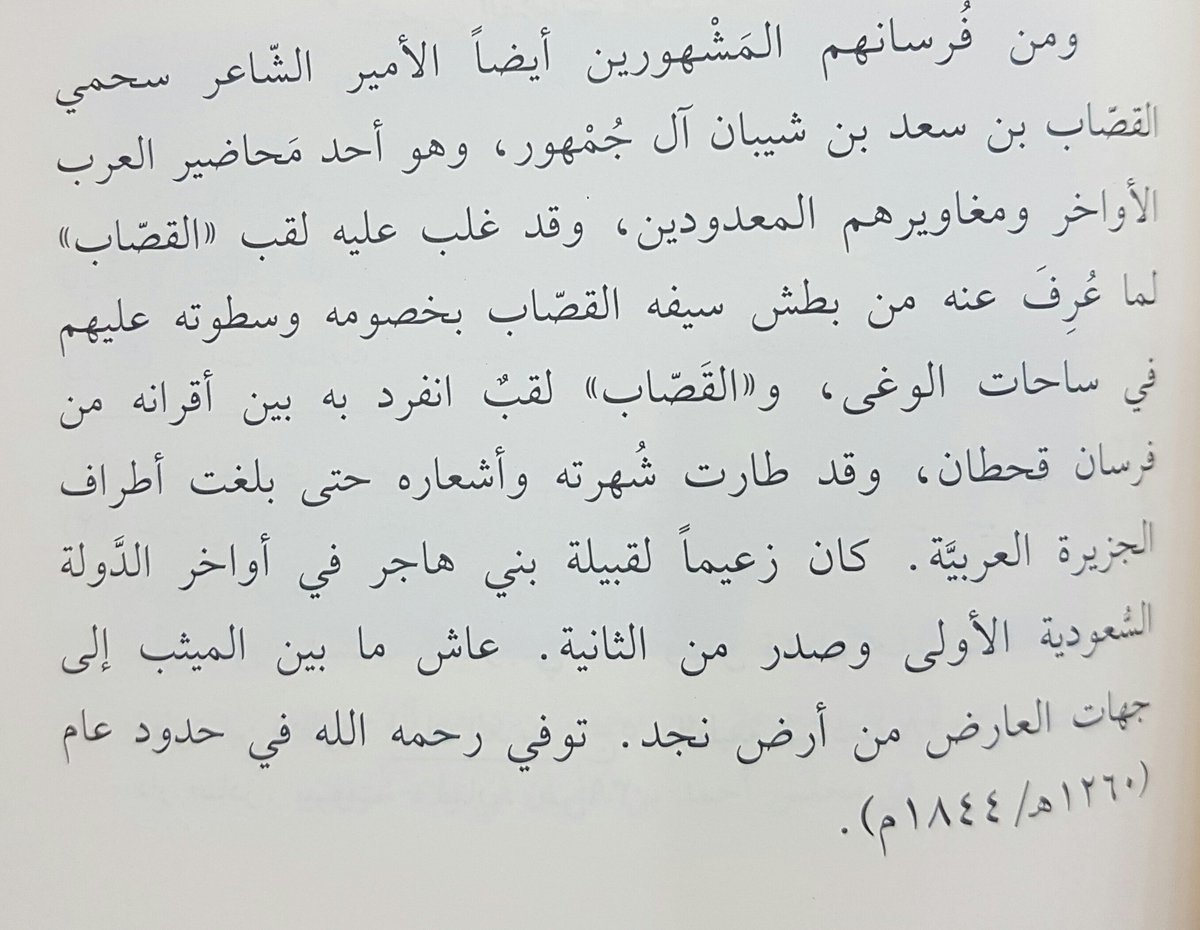 ومن فُرسانهم المَشْهورين أيضاً الأمير الشّاعر سحمي
القصّاب بن سعد بن شيبان آل جُمْهور، وهو أحد مَحاضير العرب
الأواخر ومغاويرهم المعدودين، وقد غلب عليه لقب «القصّاب»
لما عُرِفَ عنه من بطش سيفه القصّاب بخصومه وسطوته عليهم
في ساحات الوغى، و«القَصّاب» لقبٌ انفرد به بين أقرانه من
فرسان قحطان، وقد طارت شُهرته وأشعاره حتى بلغت أطراف
الجزيرة العربيَّة. كان زعيماً لقبيلة بني هاجر في أواخر الدَّولة
السُّعودية الأولى وصدر من الثانية. عاش ما بين الميثب إلى
جهات العارض من أرض نجد. توفي رحمه الله في حدود عام
(١٢٦٠هـ/ ١٨٤٤م).